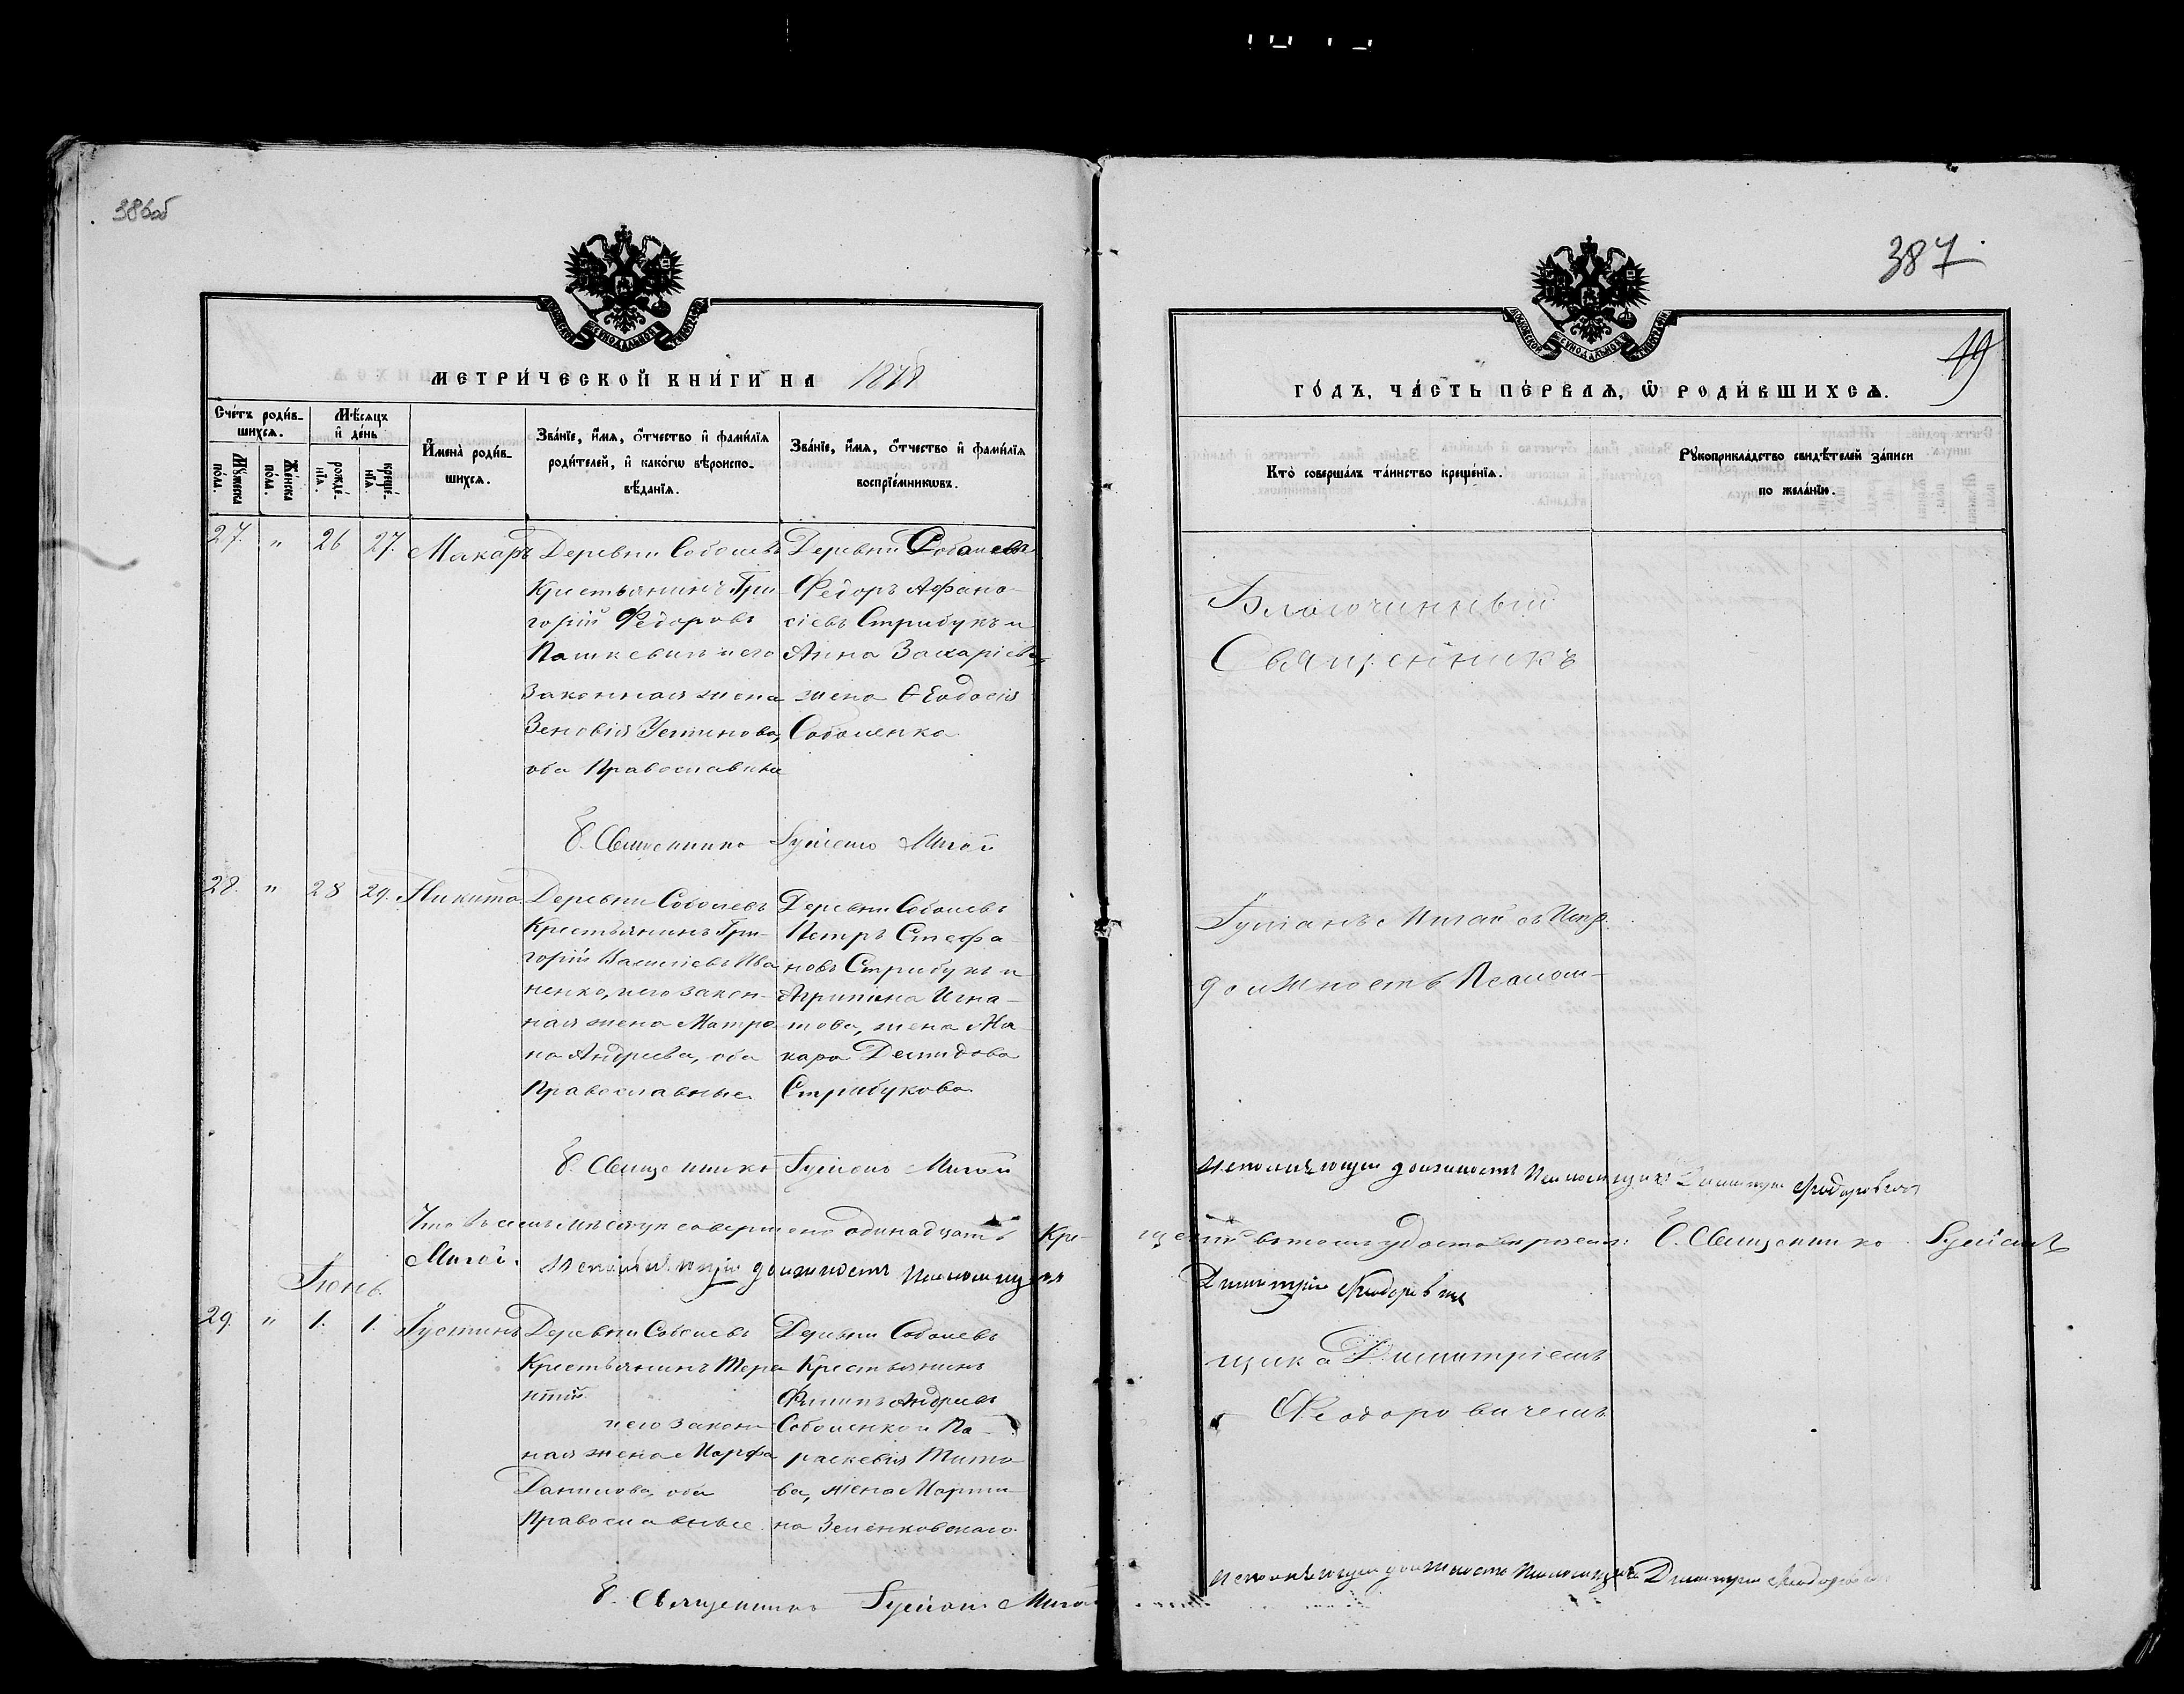 386об
387
19
МЕТРИ́ЧЕСКОЙ КНИ́ГИ НА 1878
ГО́ДЪ, ЧА́СТЬ ПЕ́РВАЯ, Ѿ РОДИ́ВШИХСЯ.
Сче́тъ роди́в-
шихся.
Мѹ́жеска
по́ла.
Же́нска
по́ла.
Мѣ́сяцъ
и҆ де́нь
рожде́-
нїѧ.
креще́-
нїѧ.
И҆мена̀ роди́в-
шихся.
Зва́нїе, и҆́мѧ, ѻ҆́тчество и҆ фами́лїѧ
роди́телей, и҆ како́гѡ вѣроиспо-
вѣ́данїѧ.
Зва́нїе, и҆́мѧ, ѻ҆́тчество и҆ фами́лїѧ
воспрїе́мникѡвъ.
Кто̀ соверша́лъ та́инство креще́нїѧ.
Рѹкоприкла́дство свидѣ́телей за́писи
по жела́нїю.
27. " 26 27. Макаръ
Деревни Соболевъ
Крестьянинъ Гри-
горій Ѳедоровъ
Пашкевичъ и его
законная жена
Зеновія Устинова,
оба Православные
Деревни Соболевъ
Ѳедоръ Афана-
сіевъ Стрибукъ и
Анна Захаріева
жена Ѳеодосія
Соболенко
Благочинный
Священникъ
Б. Священникъ Гуліанъ Мигай
28. " 28 29. Никита
Деревни Соболевъ
Крестьянинъ Гри-
горій Василіевъ Ива
ненко, и его закон-
ная жена Матро
на Андреева, оба
Православные
Деревни Соболевъ
Петръ Стефа-
новъ Стрибукъ и
Агрипина Игна-
това, жена Ма-
кара Демидова
Стрибукова
Гуліанъ Мигай съ Испр.
должность Псалом-
Б. Священникъ Гуліанъ Мигай
Исполняющій должность Псаломщика Димитрій Ѳеодоровичъ
Что въ семъ мѣсяцѣ совершено одинадцать Кре-
щеній въ томъ удостовѣряемъ: Б. Священникъ Гуліанъ
Мигай. Исполняющій должность Псаломщика
Димитрій Ѳеодоровичъ
Іюнь.
29. " 1. 1. Іустинъ
Деревни Соболевъ
Крестьянинъ Тере
нтій
и его закон-
ная жена Марфа
Данилова, оба
Православные.
Деревни Соболевъ
Крестьянинъ
Филипъ Андреевъ
Соболенко и Па-
раскевія Тито-
ва, жена Марти-
на Зеленковскаго
щика Димитріемъ
Ѳеодоровичемъ
Б. Священникъ Гуліанъ Мигай
Исполняющій должность Псаломщика Димитрій Ѳеодоровичъ